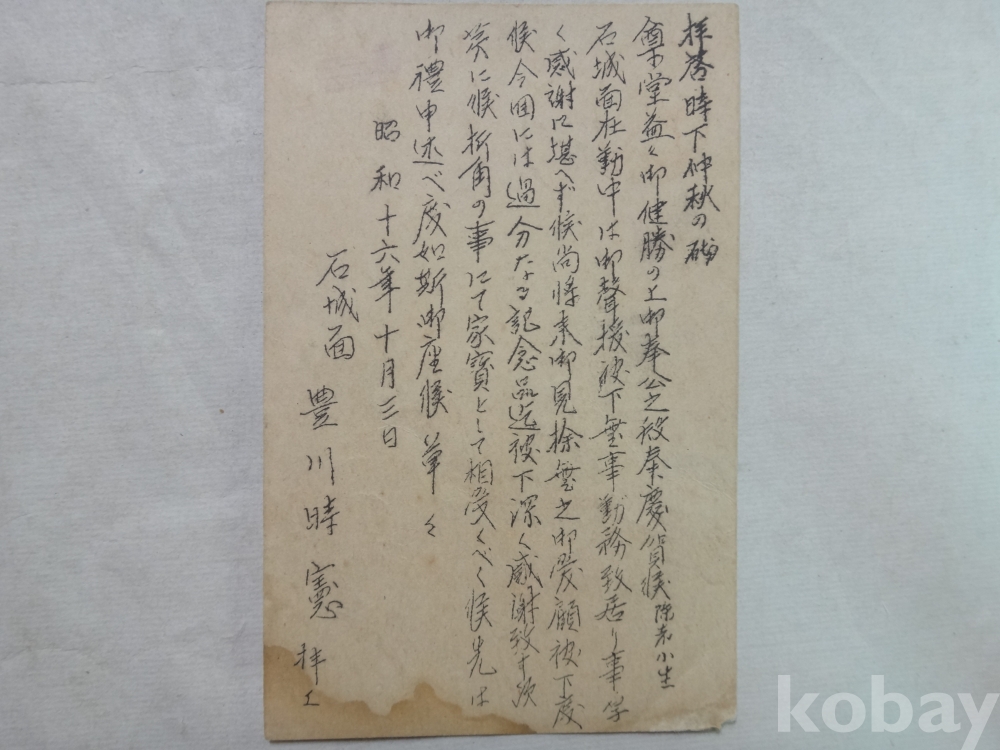 拝啓時下仲秋の砌
尊堂益々御健勝の上御奉公之段奉慶賀候 陳者小生
石城面在勤中は御聲援被下無事勤務致居り事
く感謝に堪へず候尚将来御見捨無之御愛顧被下度
候今回には過分なる記念品迄被下深く感謝致す次
第に候折角の事にて家寶として相受くべく候先は
御禮申述べ度如斯御座候 草々
昭和十六年十月三日
石城面 豊川時憲 拝上
kobay